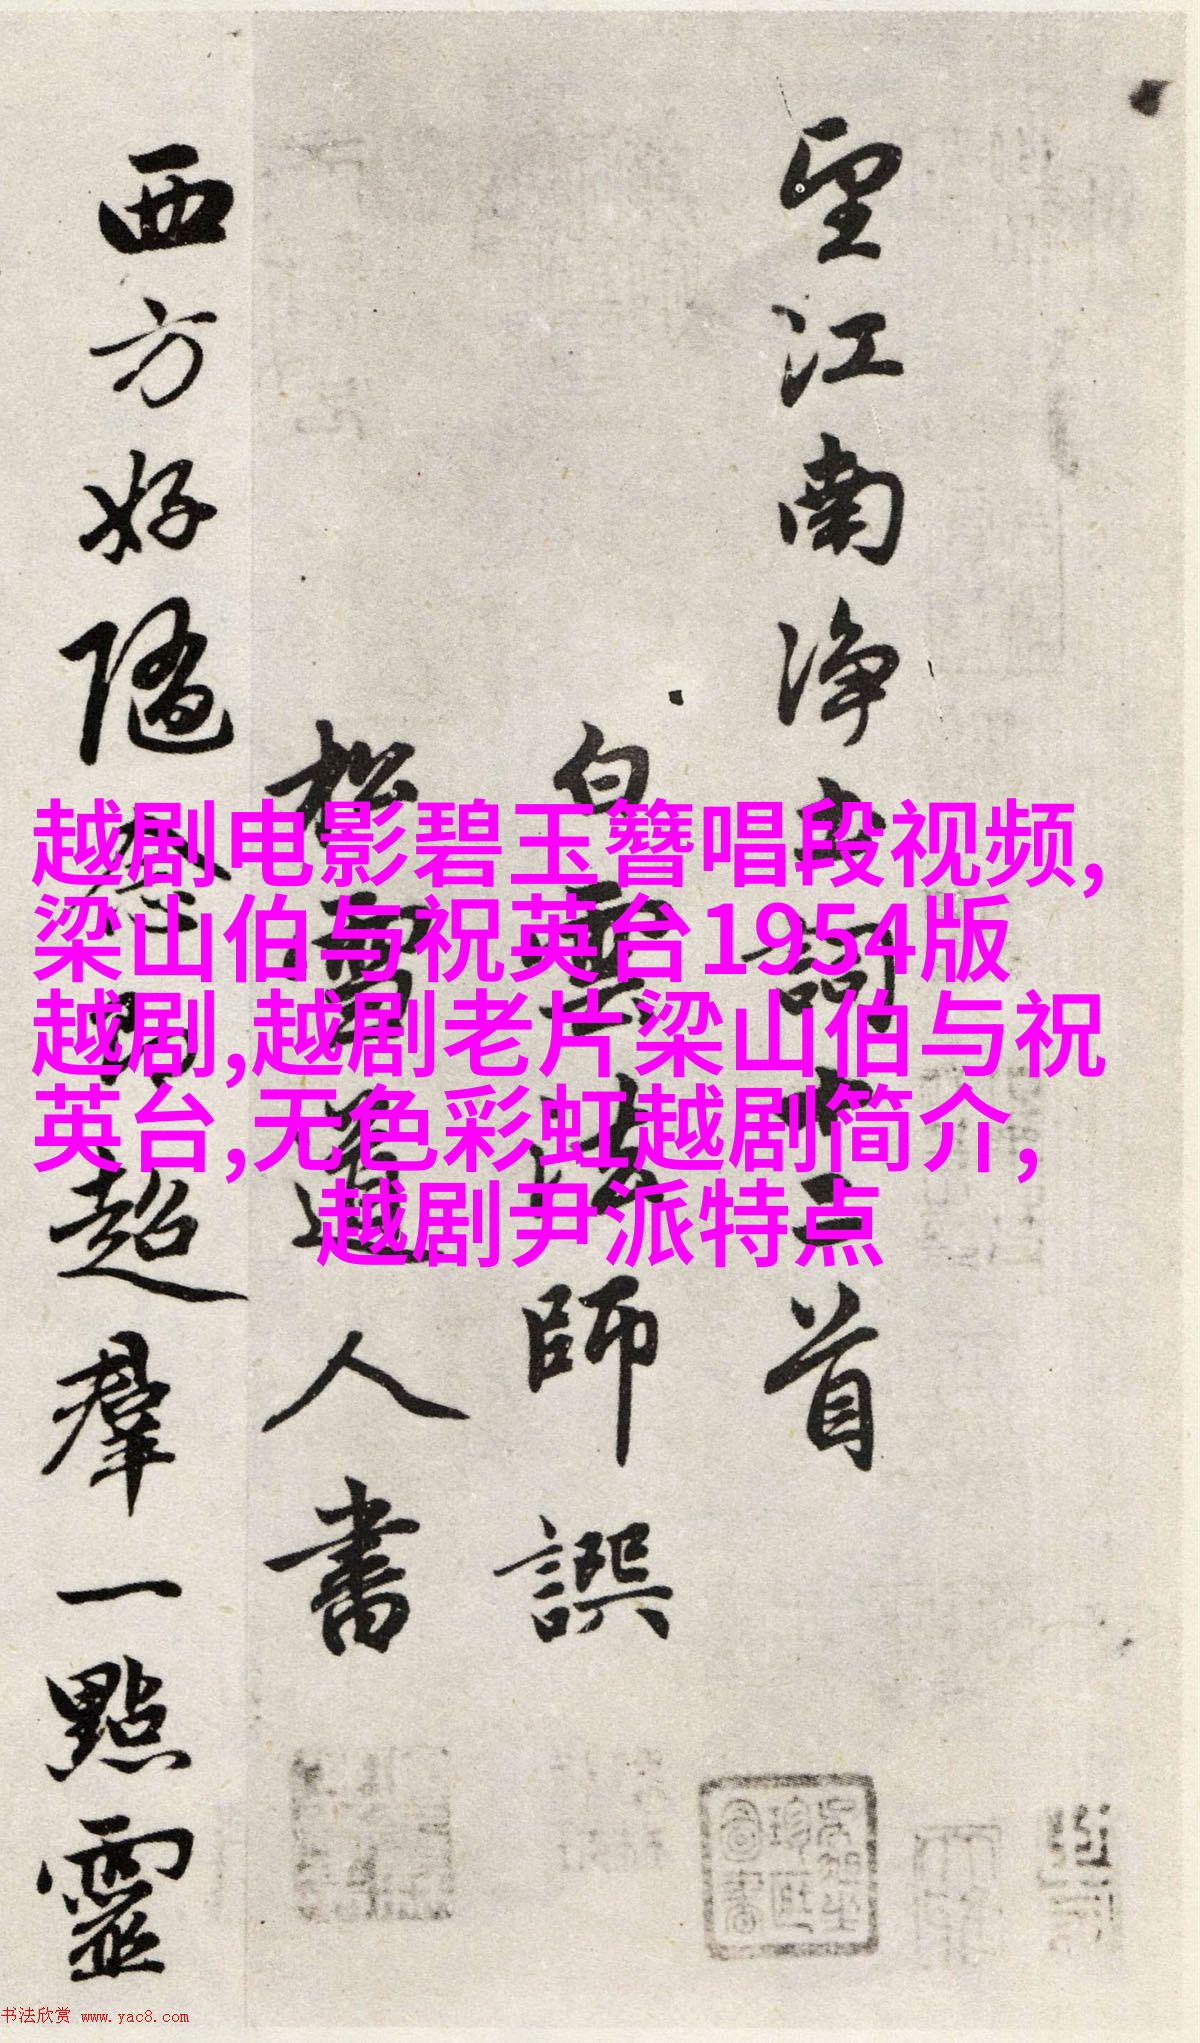 望江南淨土詞十二首
白雲法師譔
松雪道人書
西方好隨念即超羣一點靈
越剧电影碧玉簪唱段视频,
梁山伯与祝英台1954版
越剧,越剧老片梁山伯与祝
英台,无色彩虹越剧简介,
越剧尹派特点
书法欣赏 www.yac8.com